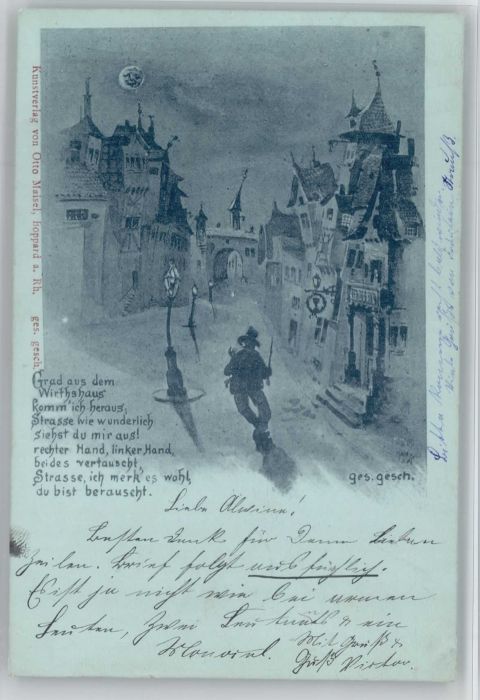 Kunstverlag von Otto Maisel, Boppard a. Rh. ges. gesch.
Grad aus dem
Wirthshaus
komm' ich heraus,
Strasse wie wunderlich
siehst du mir aus!
rechter Hand, linker Hand,
beides vertauscht,
Strasse, ich merk' es wohl,
du bist berauscht.
ges. gesch.
Liebe Alwine!
Besten Dank für Deine lieben
Zeilen. Brief folgt ausführlich.
Es ist ja nicht wie bei armen
Leuten, zwei Leutnants & ein
Monocel. Mit Gruß &
Gruß Victor.